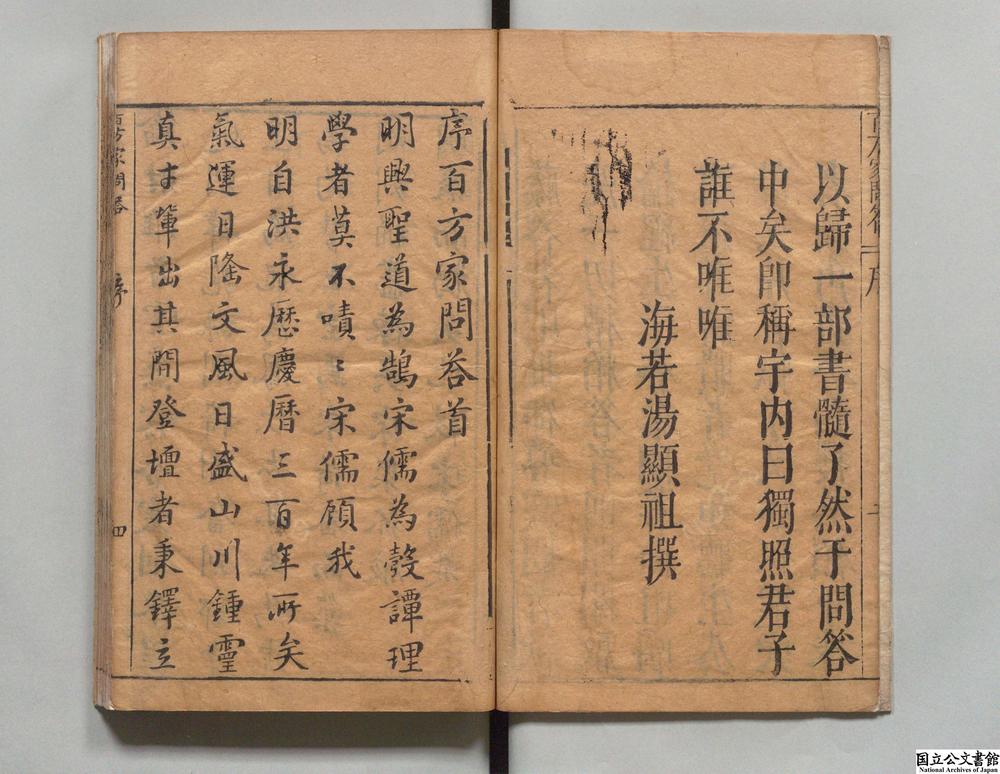 以歸一部書髓了然于問答
中矣卽稱宇内曰獨照君子
誰不唯唯
海若湯顯祖撰
序百方家問荅首
明興聖道為鵠宋儒為彀譚理
學者莫不嘖〻宋儒顧我
明自洪永歷慶曆三百年所矣
氣運日隆文風日盛山川鍾靈
真才軰出其間登壇者秉鐸立
家問荅
序
四
国立公文書館
National Archives of Japan